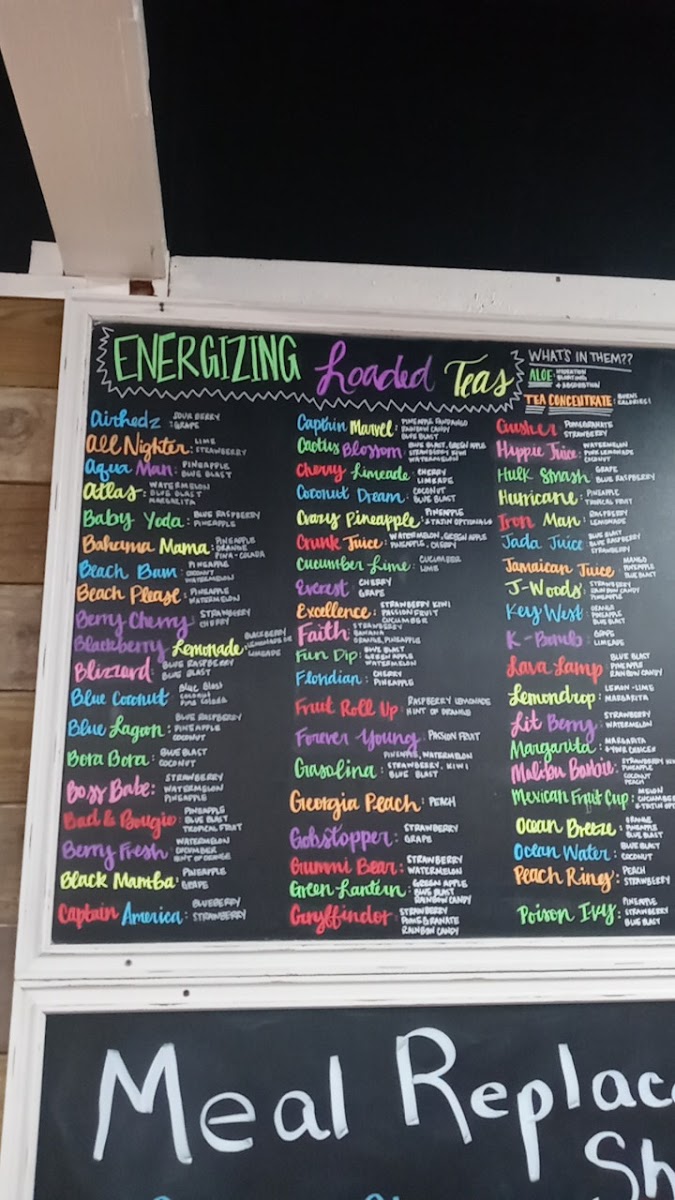 ENERGIZING Loaded Teas
WHAT'S IN THEM??
ALOE:
TEA CONCENTRATE: BURNS
CALORIES!
Airhedz : SOUR BERRY
GRAPE
All Nighter: LIME
STRAWBERRY
Aqua Man: PINEAPPLE
BLUE BLAST
Atlas: WATERMELON
BLUE BLAST
MARGARITA
Baby Yoda: BLUE RASPBERRY
PINEAPPLE
Bahama Mama: PINEAPPLE
ORANGE
PINA-COLADA
Beach Bum: PINEAPPLE
COCONUT
WATERMELON
Beach Please: PINEAPPLE
WATERMELON
Berry Cherry: STRAWBERRY
CHERRY
Blackberry Lemonade: BLACKBERRY
LEMONADE
LIMEADE
Blizzard: BLUE RASPBERRY
BLUE BLAST
Blue Coconut: Blue Blast
coconut
pina colada
Blue Lagon: BLUE RASPBERRY
PINEAPPLE
COCONUT
Bora Bora: BLUE BLAST
COCONUT
Boss Babe: STRAWBERRY
WATERMELON
PINEAPPLE
Bad & Bougie: PINEAPPLE
BLUE BLAST
TROPICAL FRUIT
Berry Fresh: WATERMELON
CUCUMBER
HINT OF ORANGE
Black Mamba: PINEAPPLE
GRAPE
Captain America: BLUEBERRY
STRAWBERRY
Captain Marvel: PINEAPPLE FANDANGO
RAINBOW CANDY
BLUE BLAST
Cactus Blossom: BLUE BLAST, GREEN APPLE
STRAWBERRY KIWI
WATERMELON
Cherry Limeade: CHERRY
LIMEADE
Coconut Dream: COCONUT
BLUE BLAST
Crazy Pineapple: PINEAPPLE
& TAJIN OPTIONAL
Crunk Juice: WATERMELON, GREEN APPLE
PINEAPPLE, CHERRY
Cucumber Lime: CUCUMBER
LIME
Everest: CHERRY
GRAPE
Excellence: STRAWBERRY KIWI
PASSION FRUIT
CUCUMBER
Faith: STRAWBERRY
BANANA
ORANGE, PINEAPPLE
Fun Dip: BLUE BLAST
GREEN APPLE
WATERMELON
Floridian: CHERRY
PINEAPPLE
Fruit Roll Up: RASPBERRY LEMONADE
HINT OF ORANGE
Forever Young: PASSION FRUIT
Gasolina: PINEAPPLE, WATERMELON
STRAWBERRY, KIWI
BLUE BLAST
Georgia Peach: PEACH
Gobstopper: STRAWBERRY
GRAPE
Gummi Bear: STRAWBERRY
WATERMELON
Green Lantern: GREEN APPLE
BLUE BLAST
RAINBOW CANDY
Gryffindor: STRAWBERRY
POMEGRANATE
RAINBOW CANDY
Gusher: POMEGRANATE
STRAWBERRY
Hippie Juice: WATERMELON
PINK LEMONADE
COCONUT
Hulk Smash: GRAPE
BLUE RASPBERRY
Hurricane: PINEAPPLE
TROPICAL FRUIT
Iron Man: RASPBERRY
LEMONADE
Jada Juice: BLUE BLAST
BLUE RASPBERRY
STRAWBERRY
Jamaican Juice: MANGO
PINEAPPLE
BLUE BLAST
J-Woods: STRAWBERRY
RAINBOW CANDY
PINEAPPLE
Key West: ORANGE
PINEAPPLE
BLUE BLAST
K-Bomb: GRAPE
LIMEADE
Lava Lamp: BLUE BLAST
PINEAPPLE
RAINBOW CANDY
Lemondrop: LEMON-LIME
MARGARITA
Lit Berry: STRAWBERRY
WATERMELON
Margarita: MARGARITA
Malibu Barbie: STRAWBERRY
PINEAPPLE
COCONUT
PEACH
Mexican Fruit Cup: MELON
CUCUMBER
Ocean Breeze: ORANGE
PINEAPPLE
BLUE BLAST
Ocean Water: BLUE BLAST
COCONUT
Peach Ring: PEACH
STRAWBERRY
Poison Ivy: PINEAPPLE
STRAWBERRY
BLUE BLAST
Meal Replac
Sh